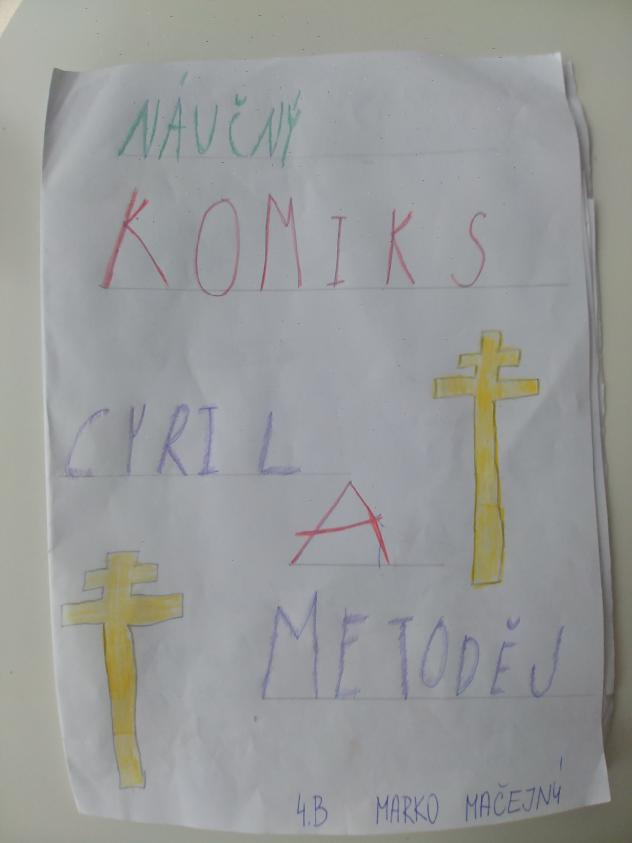 NÁUČNÝ
KOMIKS
CYRIL
A
METODĚJ
4.B MARKO MAČEJNÝ